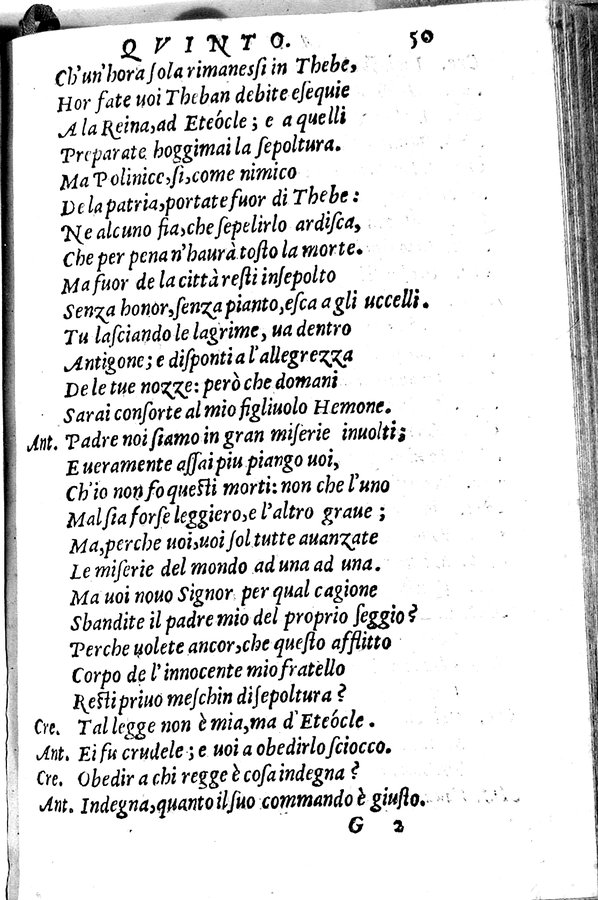 QVINTO. 50
Ch'un'hora sola rimanessi in Thebe,
Hor fate uoi Theban debite esequie
A la Reina, ad Eteócle; e a quelli
Preparate hoggimai la sepoltura.
Ma Polinice, si, come nimico
De la patria, portate fuor di Thebe:
Ne alcuno fia, che sepelirlo ardisca,
Che per pena n'haurà tosto la morte.
Ma fuor de la città resti insepolto
Senza honor, senza pianto, esca a gli uccelli.
Tu lasciando le lagrime, ua dentro
Antigone; e disponti a l'allegrezza
De le tue nozze: però che domani
Sarai consorte al mio figliuolo Hemone.
Ant. Padre noi siamo in gran miserie inuolti;
E ueramente assai piu piango uoi,
Ch'io non fo questi morti: non che l'uno
Mal sia forse leggiero, e l'altro graue;
Ma, perche uoi, uoi sol tutte auanzate
Le miserie del mondo ad una ad una.
Ma uoi nouo Signor per qual cagione
Sbandite il padre mio del proprio seggio?
Perche uolete ancor, che questo afflitto
Corpo de l'innocente mio fratello
Resti priuo meschin di sepoltura?
Cre. Tal legge non è mia, ma d'Eteócle.
Ant. Ei fu crudele; e uoi a obedirlo sciocco.
Cre. Obedir a chi regge è cosa indegna?
Ant. Indegna, quanto il suo commando è giusto.
G 2